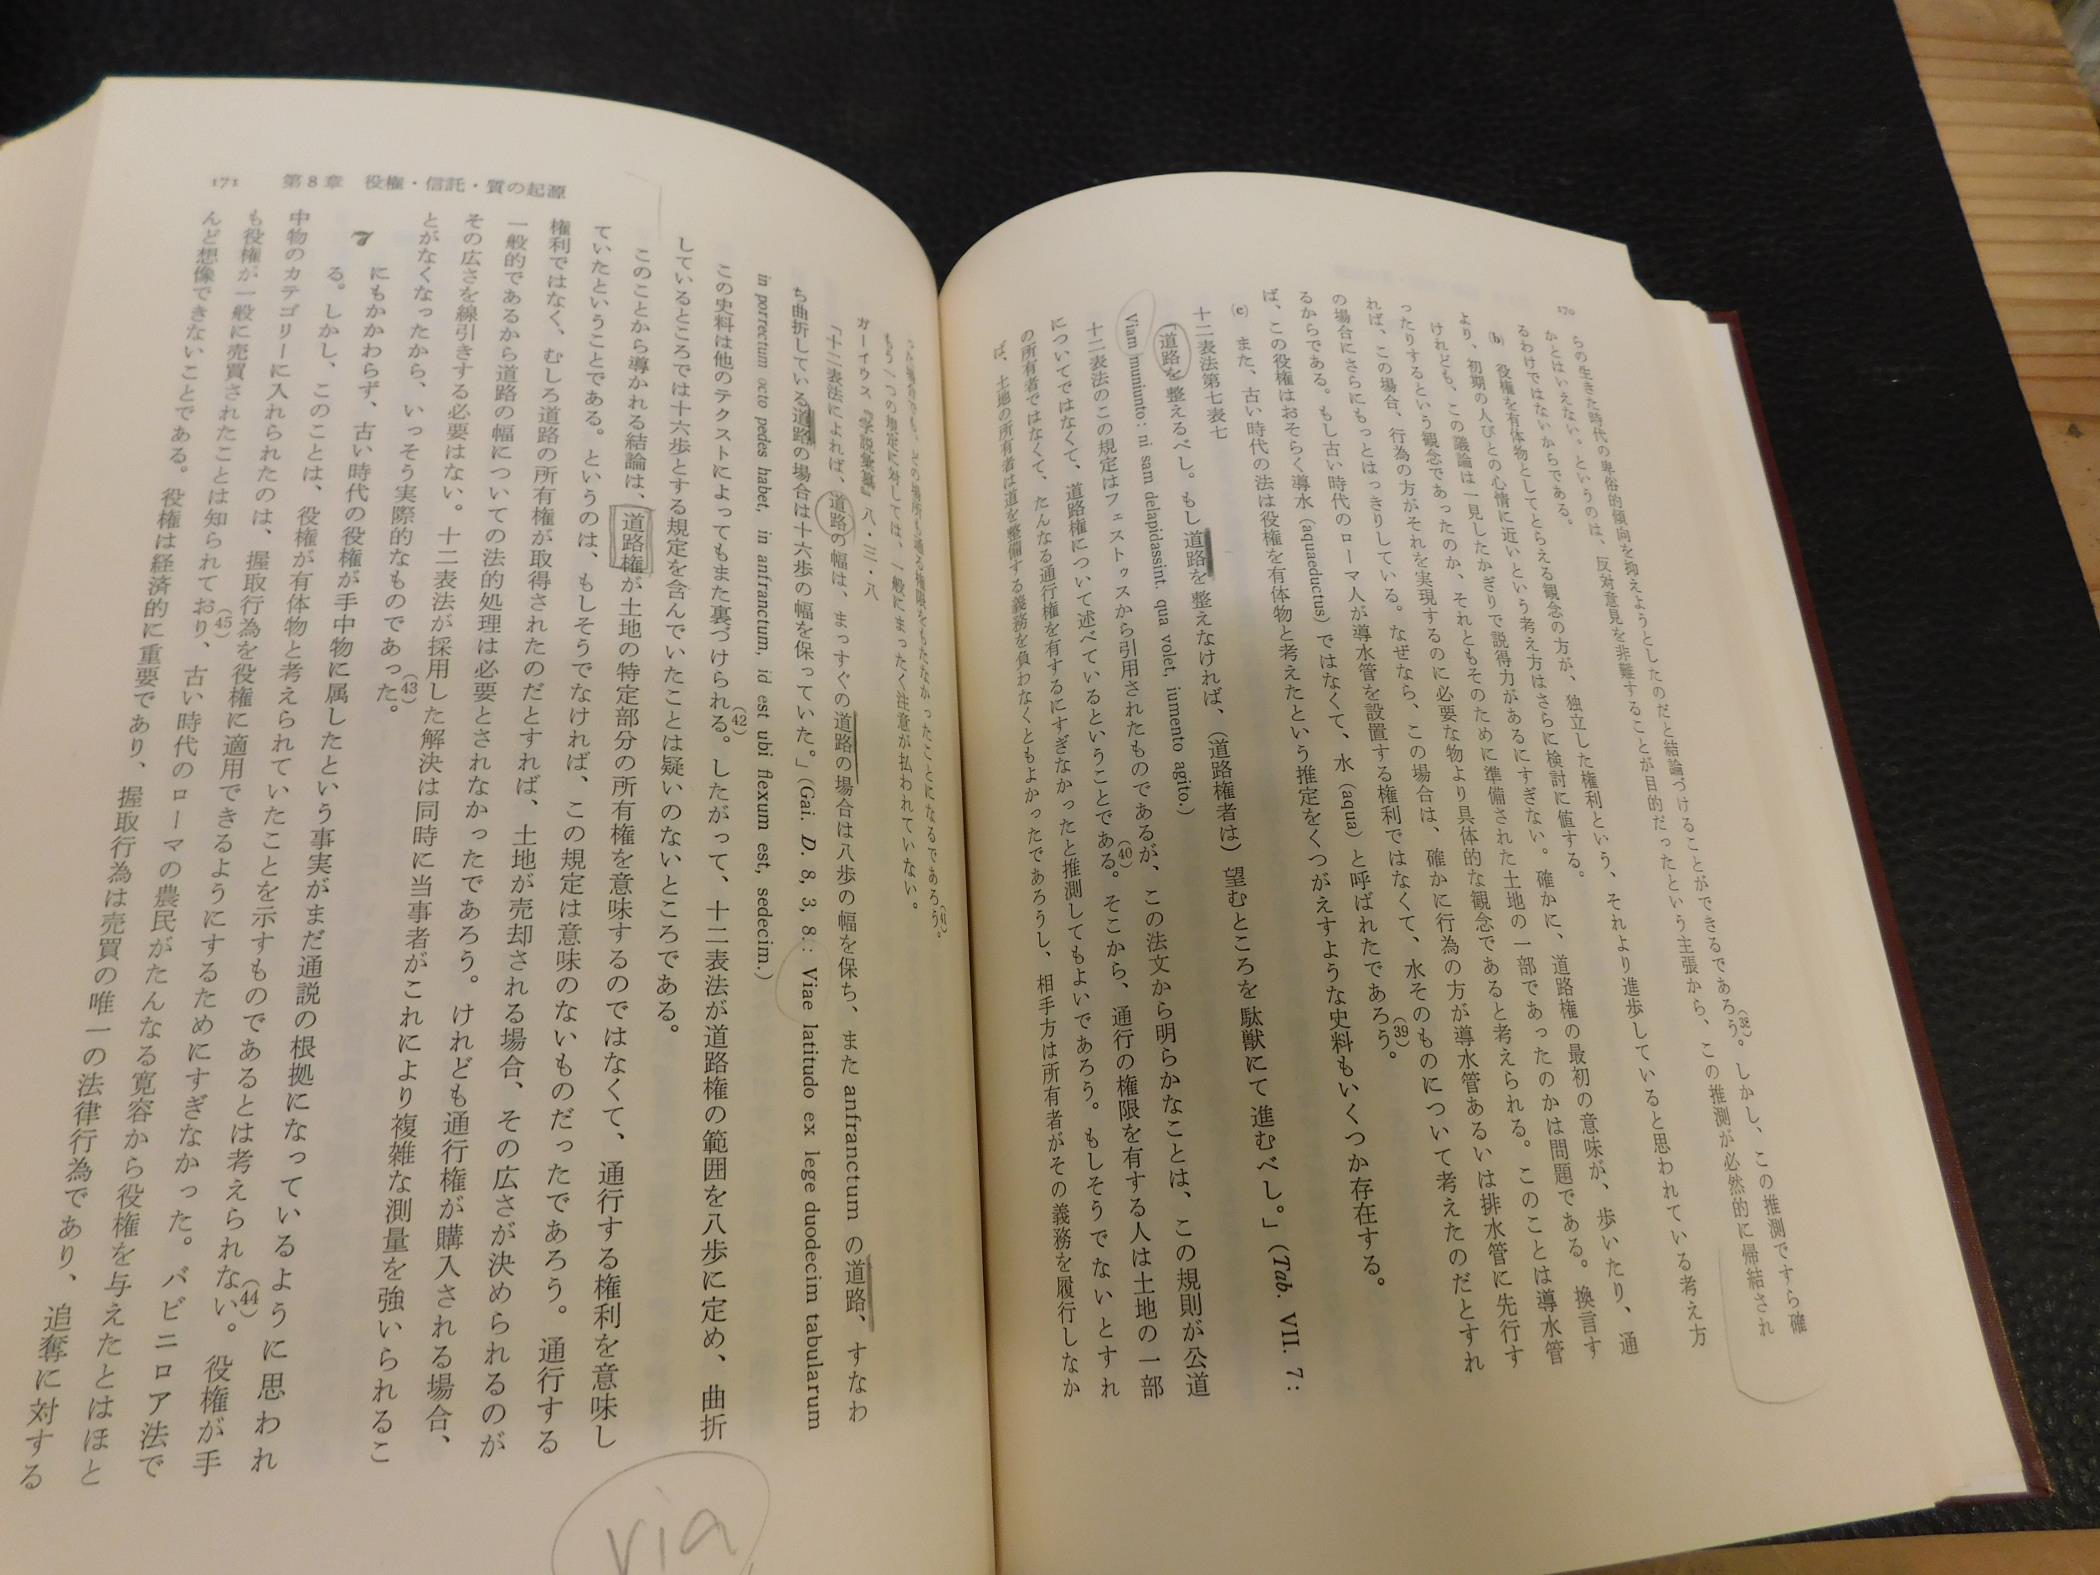 170
らの生きた時代の卑俗的傾向を抑えようとしたのだと結論づけることができるであろう。(38)しかし、この推測ですら確
かとはいえない。というのは、反対意見を非難することが目的だったという主張から、この推測が必然的に帰結され
るわけではないからである。
(b) 役権を有体物としてとらえる観念の方が、独立した権利という、それより進歩していると思われている考え方
より、初期の人びとの心情に近いという考え方はさらに検討に値する。
けれども、この議論は一見したかぎりで説得力があるにすぎない。確かに、道路権の最初の意味が、歩いたり、通
ったりするという観念であったのか、それともそのために準備された土地の一部であったのかは問題である。換言す
れば、この場合、行為の方がそれを実現するのに必要な物より具体的な観念であると考えられる。このことは導水管
の場合にさらにもっとはっきりしている。なぜなら、この場合は、確かに行為の方が導水管あるいは排水管に先行す
るからである。もし古い時代のローマ人が導水管を設置する権利ではなくて、水そのものについて考えたのだとすれ
ば、この役権はおそらく導水 (aquaeductus) ではなくて、水 (aqua) と呼ばれたであろう。(39)
(c) また、古い時代の法は役権を有体物と考えたという推定をくつがえすような史料もいくつか存在する。
十二表法第七表七
「道路を整えるべし。もし道路を整えなければ、(道路権者は) 望むところを駄獣にて進むべし。」(Tab. VII. 7:
Viam muniunto: ni sam delapidasint, qua volet iumento agito.)
十二表法のこの規定はフェストゥスから引用されたものであるが、この法文から明らかなことは、この規則が公道
についてではなくて、道路権について述べているということである。(40)そこから、通行の権限を有する人は土地の一部
の所有者ではなくて、たんなる通行権を有するにすぎなかったと推測してもよいであろう。もしそうでないとすれ
ば、土地の所有者は道を整備する義務を負わなくともよかったであろうし、相手方は所有者がその義務を履行しなか
171 第8章 役権・信託・質の起源
った場合でも、どの場所も通る権限をもたなかったことになるであろう。(41)
もう一つの規定に対しては、一般にまったく注意が払われていない。
ガーイウス『学説彙纂』八・三・八
「十二表法によれば、道路の幅は、まっすぐの道路の場合は八歩の幅を保ち、また anfranctum の道路、すなわ
ち曲折している道路の場合は十六歩の幅を保っていた。」(Gai. D. 8, 3, 8: Viae latitudo ex lege duodecim tabularum
in porrectum octo pedes habet, in anfranctum, id est ubi flexum est, sedecim.)
この史料は他のテクストによってもまた裏づけられる。(42)したがって、十二表法が道路権の範囲を八歩に定め、曲折
しているところでは十六歩とする規定を含んでいたことは疑いのないところである。
このことから導かれる結論は、道路権が土地の特定部分の所有権を意味するのではなくて、通行する権利を意味し
ていたということである。というのは、もしそうでなければ、この規定は意味のないものだったであろう。通行する
権利ではなく、むしろ道路の所有権が取得されたのだとすれば、土地が売却される場合、その広さが決められるのが
一般的であるから道路の幅についての法的処理は必要とされなかったであろう。けれども通行権が購入される場合、
その広さを線引きする必要はない。十二表法が採用した解決は同時に当事者がこれにより複雑な測量を強いられるこ
とがなくなったから、いっそう実際的なものであった。(43)
7
にもかかわらず、古い時代の役権が手中物に属したという事実がまだ通説の根拠になっているように思われ
る。しかし、このことは、役権が有体物と考えられていたことを示すものであるとは考えられない。(44)役権が手
中物のカテゴリーに入れられたのは、握取行為を役権に適用できるようにするためにすぎなかった。バビニロア法で
も役権が一般に売買されたことは知られており、(45)古い時代のローマの農民がたんなる寛容から役権を与えたとはほと
んど想像できないことである。役権は経済的に重要であり、握取行為は売買の唯一の法律行為であり、追奪に対する
via